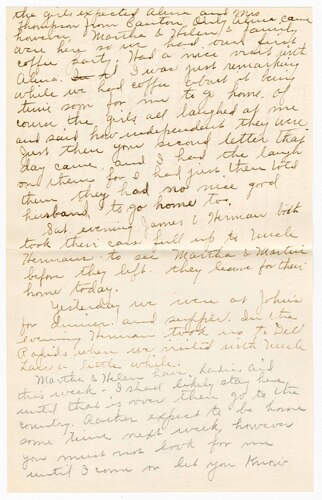 the girls expected Alma and Mrs
Thompson from Canton. Only Alma came
however. Martha & Helen & family
were here so we had our first
coffee party. Had a nice visit with
Alma. I was just remarking
while we had coffee about it being
time soon for me to go home. Of
course the girls all laughed at me
and said how independent they were.
Just then your second letter that
day came and I had the laugh
on them for I had just then told
them they had no nice good
husband to go home to.
Sat evening James & Herman both
took their cars full up to Uncle
Hermans to see Martha & Martin
before they left. They leave for their
home today.
Yesterday we were at John's
for dinner and supper. In the
evening Herman took us to Dell
Rapids where we visited with Uncle
a little while.
Martha & Helen have Ladies aid
this week. I shall likely stay here
until that is over then go to the
country. Rather expect to be home
some time next week, however
you must not look for me
until I come or let you know